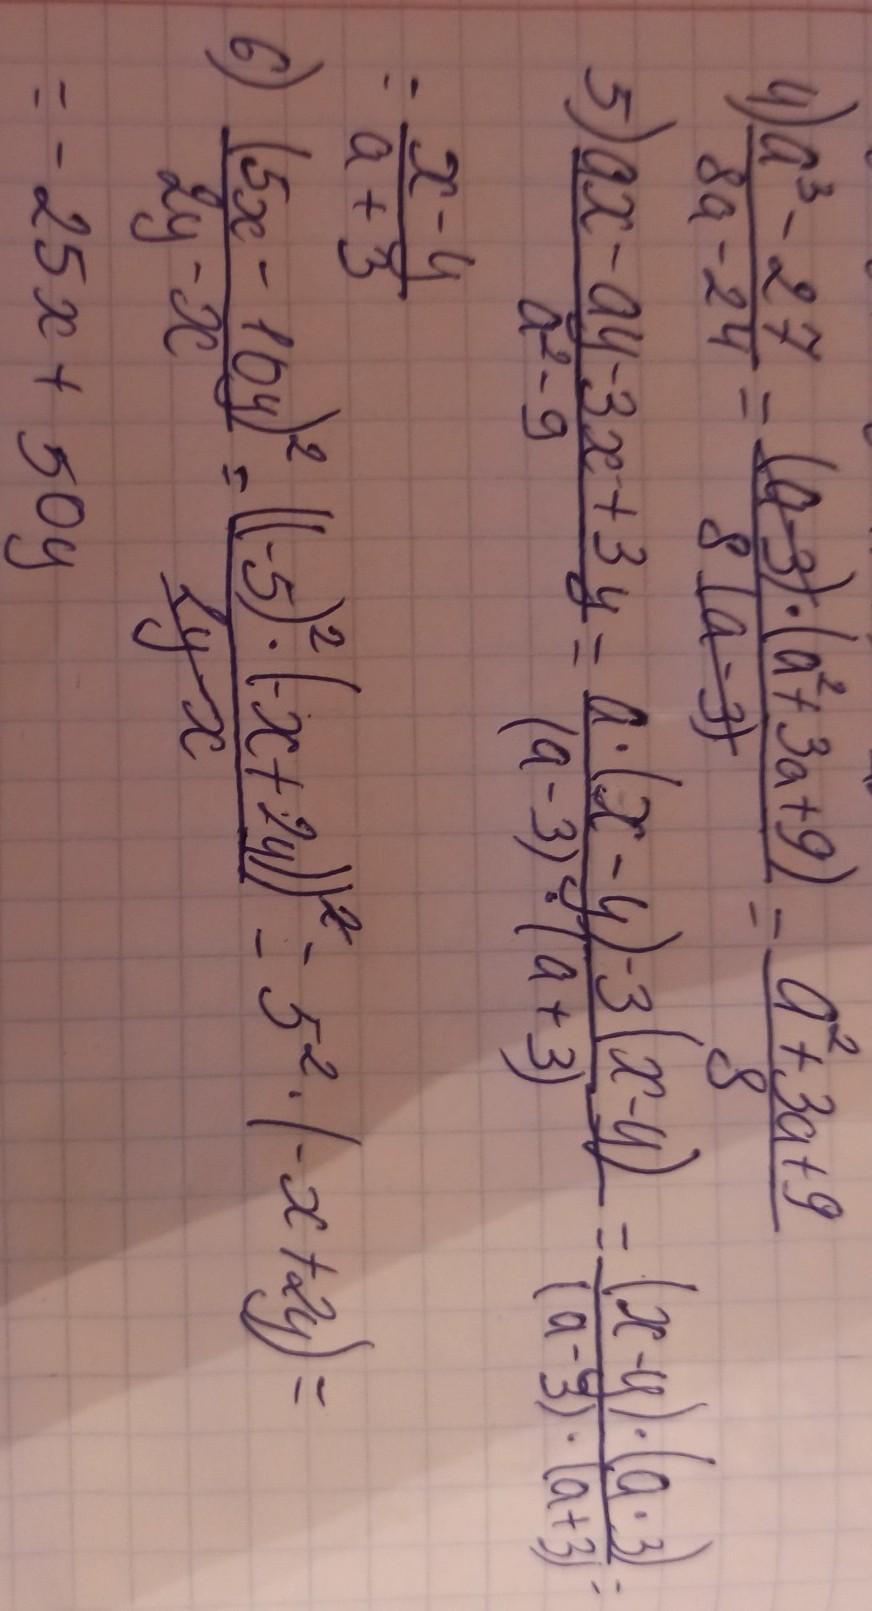 4) a³ - 27 / 8a - 24 = (a-3)·(a²+3a+9) / 8(a-3) = a²+3a+9 / 8
5) ax - ay - 3x + 3y / a² - 9 = a·(x-y) - 3(x-y) / (a-3)·(a+3) = (x-y)·(a·3) / (a-3)·(a+3) =
= x-y / a+3
6) (5x - 10y)² / 2y - x = ((-5)²·(-x+2y))² / 2y-x = 5²·(-x+2y) =
= -25x + 50y